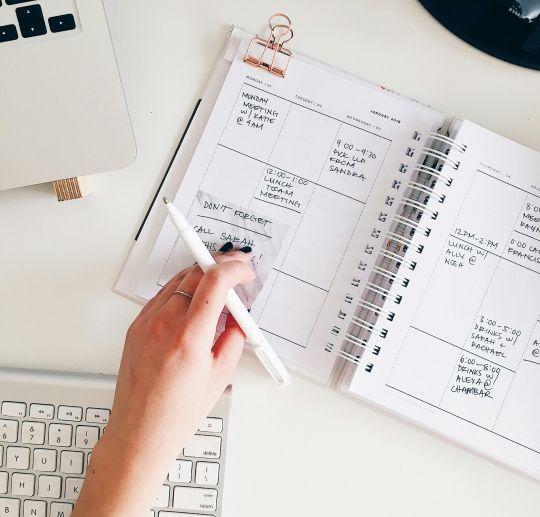 MONDAY / 01
MONDAY
MEETING
W/ KATIE
@ 9AM
TUESDAY / 02
12:00-1:00
LUNCH
TEAM
MEETING
JANUARY 2018
WEDNESDAY / 03
9:00-9:30
PICK
FROM
SANDRA
DON'T FORGET
CALL SARAH
THIS
THURSDAY / 04
12PM-2PM
LUNCH W/
ALLY @
NOSH
3:00-5:00
DRINKS W/
SARAH +
RACHAEL
6:00-8:00
DRINKS W/
ALEXA @
CHAMBAR
delete
return